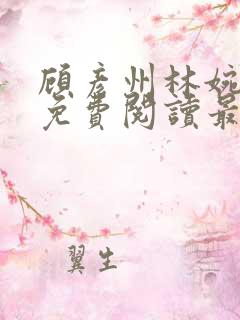 顾彦州林婉
免費閱讀最
翼生